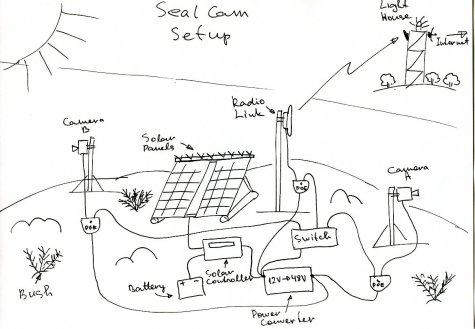 Seal Cam
Setup
Light
House
Internet
Radio
Link
Camera
B
Solar
Panels
Camera
A
POE
POE
Switch
Solar
Controller
Battery
- +
12V→48V
POE
Bush
Power
Converter